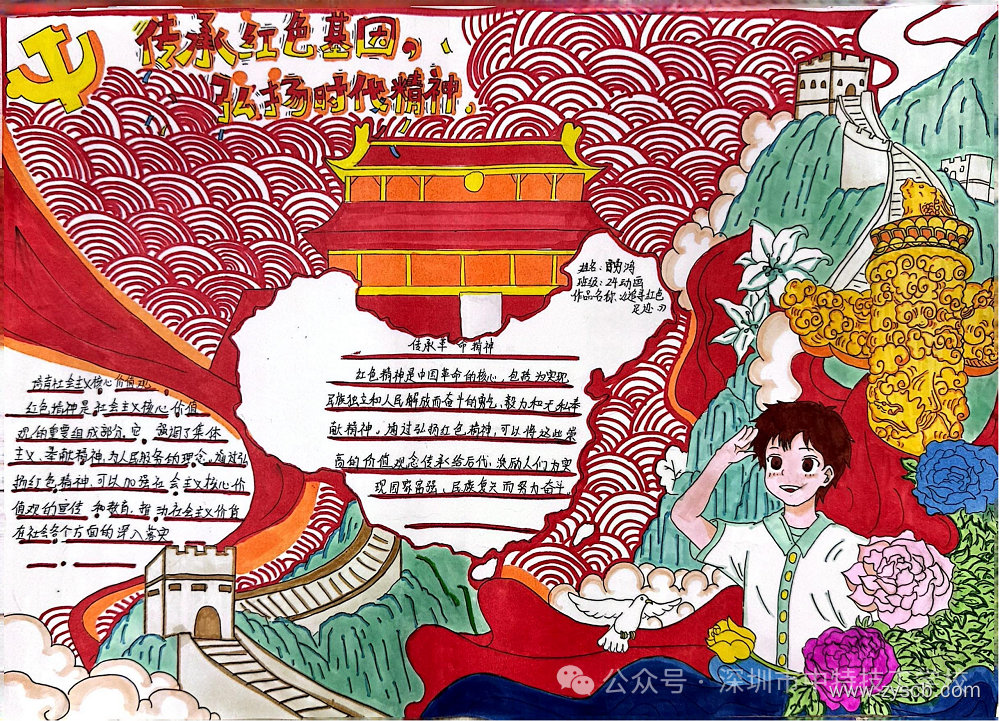 传承红色基因,
弘扬时代精神.
姓名:
班级:24动画
作品名称:《追寻红色
足迹》
传承革命精神
红色精神是中国革命的核心,包括为实现
民族独立和人民解放而奋斗的勇气、毅力和无私奉
献精神。通过弘扬红色精神,可以将这些崇
高的价值观念传承给后代,激励人们为实
现国家富强、民族复兴而努力奋斗.
培育社会主义核心价值观
红色精神是社会主义核心价值
观的重要组成部分.它,强调了集体
主义、奉献精神、为人民服务的理念.通过弘
扬红色精神,可以加强社会主义核心价
值观的宣传和教育.推动社会主义价值
在社会各个方面的深入落实
公众号·深圳市中特技
校
www.zyscb.com